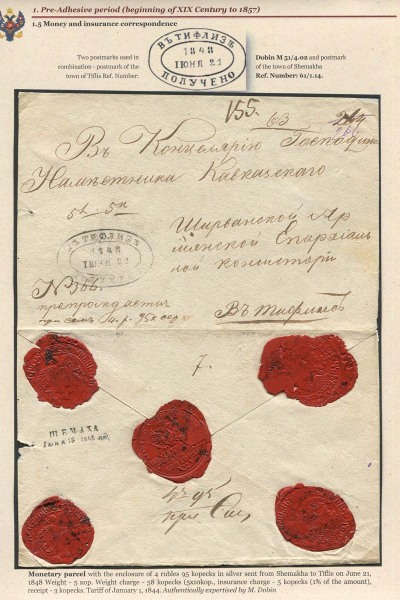 1. Pre-Adhesive period (beginning of XIX Century to 1857)
1.5 Money and insurance correspondence
Two postmarks used in
combination - postmark of the
town of Tiflis Ref. Number:
ВЪ ТИФЛИСѢ
1848
ІЮНЯ 21
ПОЛУЧЕНО
Dobin M 51/4.02 and postmark
of the town of Shemakha
Ref. Number: 61/1.14.
155.
63
Въ Канцелярію Господина
Намѣстника Кавказскаго
Ширванской Ар
мянской Епархіаль
ной консисторіи
1848
ІЮНЯ 21
№ 366.
препровождается
при семъ 4 р. 95 к сер
Въ Тифлисъ
7.
ШЕМАХА
1848
4 р 95
при
Monetary parcel with the enclosure of 4 rubles 95 kopecks in silver sent from Shemakha to Tiflis on June 21,
1848 Weight - 5 лор. Weight charge - 58 kopecks insurance charge - 5 kopecks (1% of the amount),
receipt - 3 kopecks. Tariff of January 1, 1844. Authentically expertised by M. Dobin